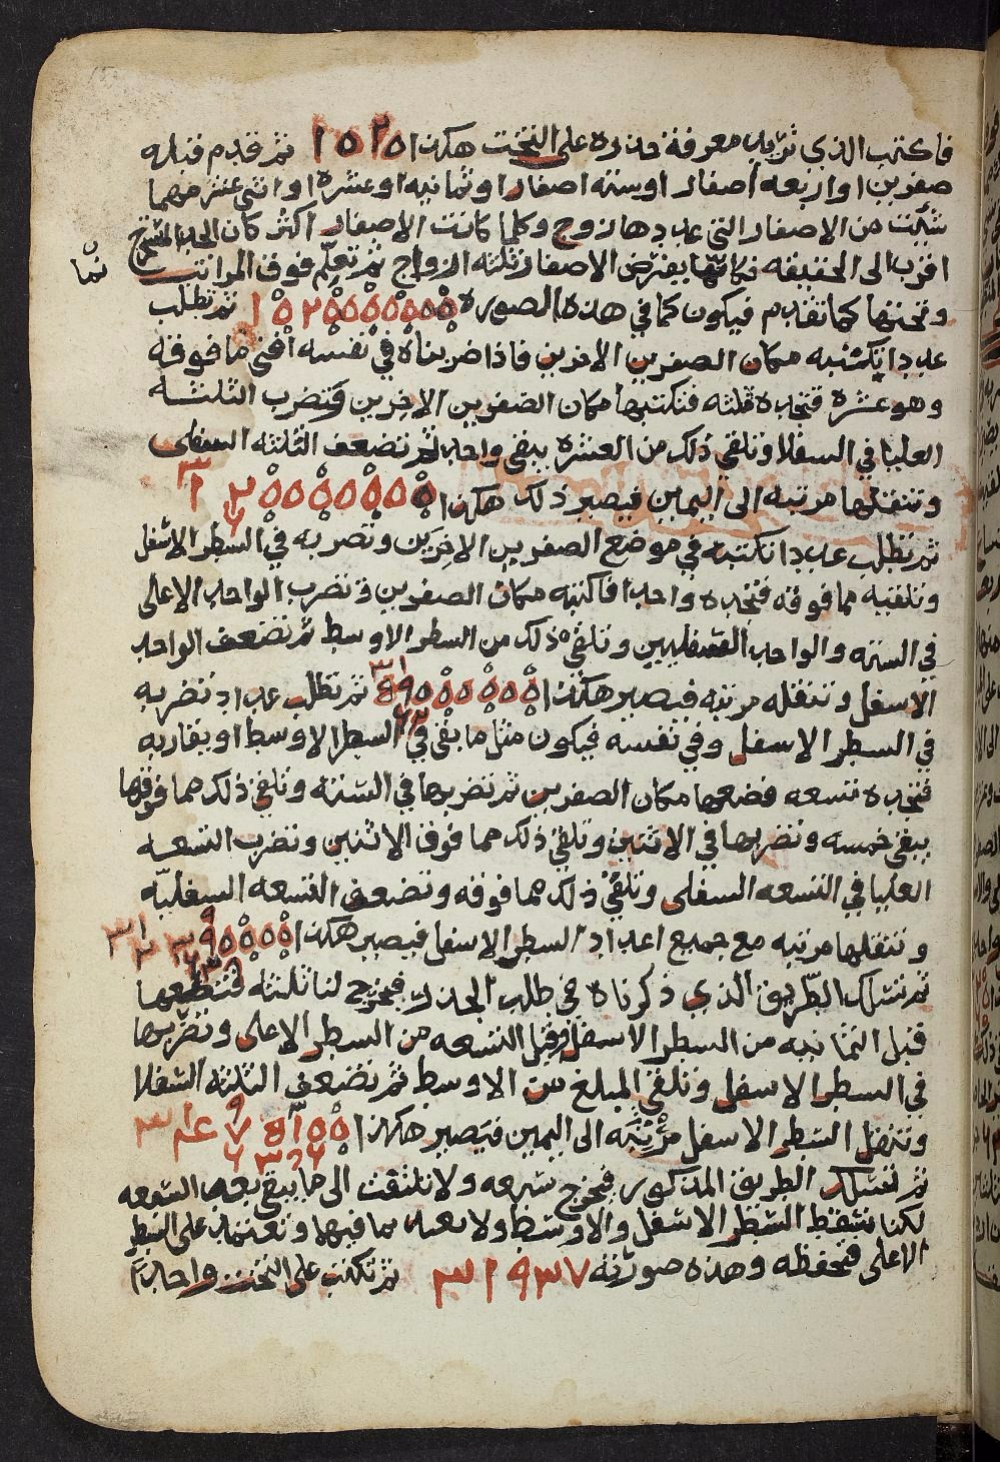 فاكتب الذي تريد معرفة جذره على التخت هكذا ١٥٢٥ ثم قدم قبله
صفرين او اربعه اصفار او سته اصفار او ثمانيه او عشره او اثني عشر مهما
شئت من الاصفار التي عددها زوج وكلما كانت الاصفار اكثر كان الجذر
اقرب الى الحقيقه يفترض الاصفار ثلثه ازواج ثم تعلم فوق المراتب
وتحتها كما تقدم فيكون كما في هذه الصوره ثم تطلب
عددا تكتبه مكان الصفرين الاخرين فاذا ضربناه في نفسه افنى ما فوقه
وهو عشره فتجده ثلثه فنكتبها مكان الصفرين الاخرين ونضرب الثلثه
العليا في السفلا ونلقي ذلك من العشره يبقى واحد ثم نضعف الثلثه السفلى
وننقلها مرتبه الى اليمين فيصير ذلك هكذا
ثم نطلب عددا نكتبه في موضع الصفرين الاخرين ونضربه في السطر الاسفل
ونلقيه مما فوقه فتجده واحدا فاكتبه مكان الصفرين ونضرب الواحد الاعلى
في السته والواحد السفليين ونلقي ذلك من السطر الاوسط ثم نضعف الواحد
الاسفل وننقله مرتبه فيصير هكذا ثم نطلب عددا نضربه
في السطر الاسفل وفي نفسه فيكون مثل ما بقي في السطر الاوسط او يقاربه
فتجده تسعه فضعها مكان الصفرين ثم نضربها في السته ونلقي ذلك مما فوقها
يبقى خمسه ونضربها في الاثنين ونلقي ذلك مما فوق الاثنين ونضرب التسعه
العليا في التسعه السفلى ونلقي ذلك مما فوقه ونضعف التسعه السفليه
وننقلها مرتبه مع جميع اعداد السطر الاسفل فيصير هكذا
ثم نسلك الطريق الذي ذكرناه في طلب الجذر فيخرج لنا ثلثه فنضعها
قبل الثمانيه من السطر الاسفل وقبل التسعه من السطر الاعلى ونضربها
في السطر الاسفل ونلقي المبلغ من الاوسط ثم نضعف الثلثه السفلا
وننقل السطر الاسفل مرتبه الى اليمين فيصير هكذا
ثم نسلك الطريق المذكور فيخرج سبعه ولا نلتفت الى ما يبقى بعد السبعه
لكنا نسقط السطر الاسفل والاوسط ولا نعبا بما فيهما ونعتمد على السطر
الاعلى فنحفظه وهذه صورته ٣١٩٣٧ ثم نكتب على التخت واحدا